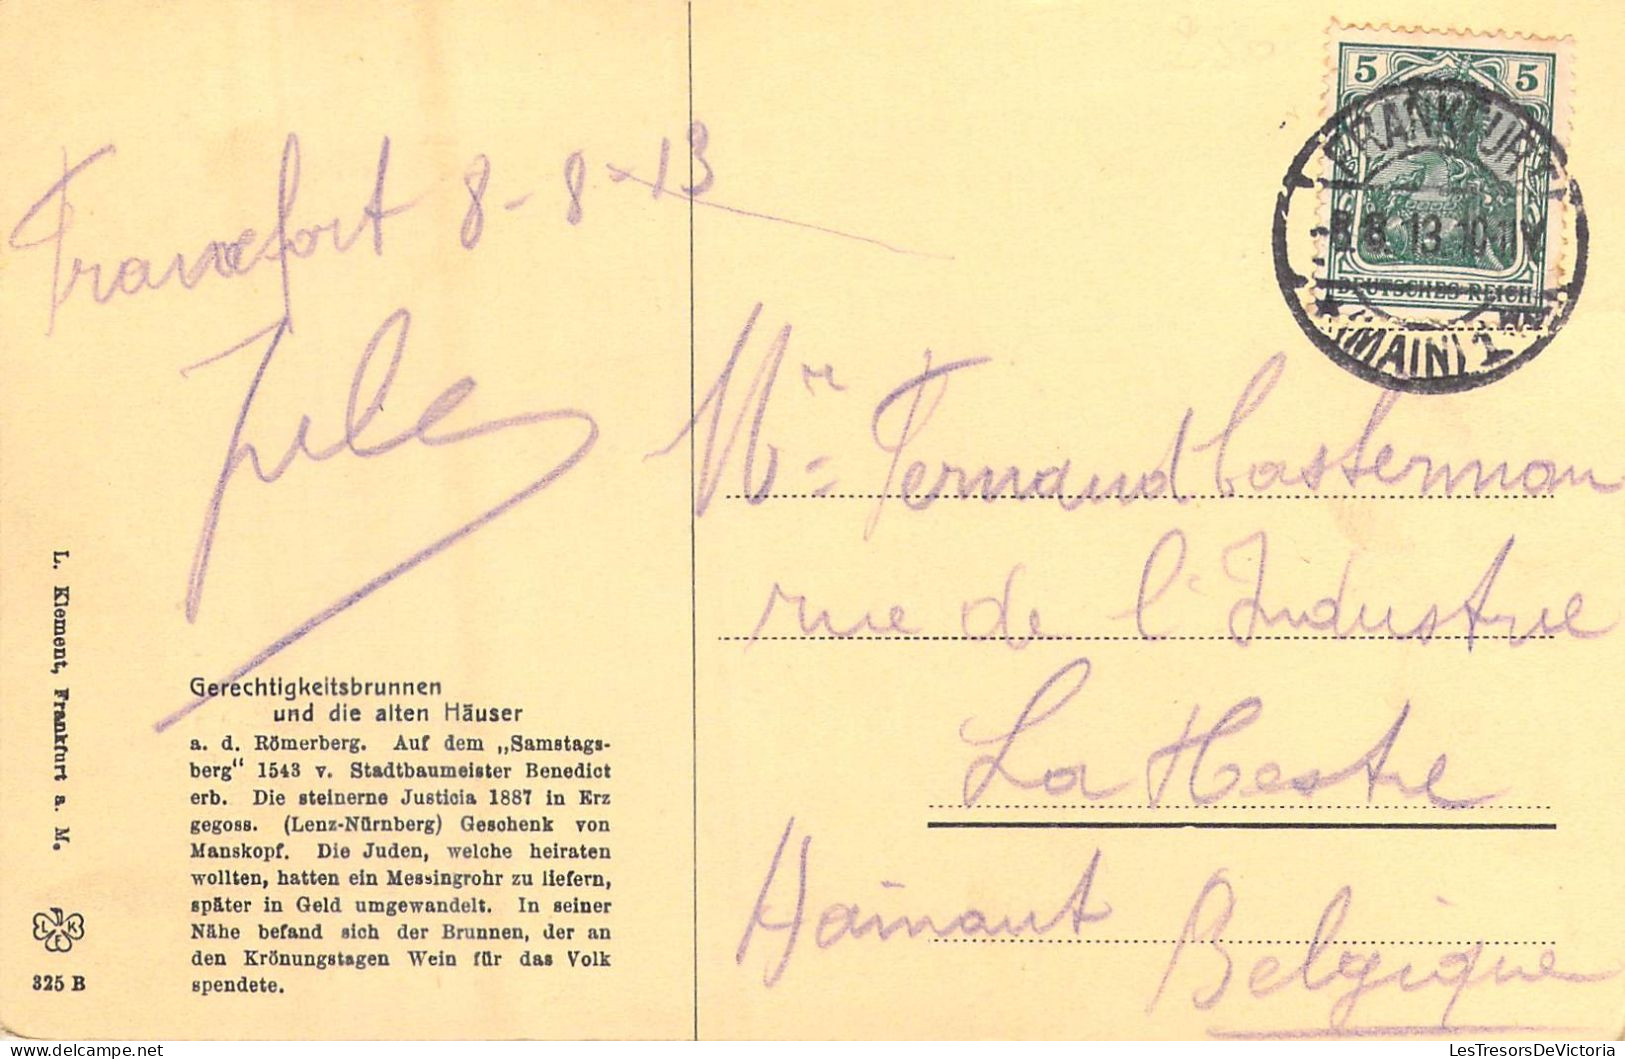 Francfort 8-8-13
Jules
5 5
FRANKFURT
8.8.13.10-11V
DEUTSCHES REICH
* (MAIN) 1 *
Mr Fernand Casterman
rue de l'Industrie
La Hestre
Hainaut
Belgique
Gerechtigkeitsbrunnen
und die alten Häuser
a. d. Römerberg. Auf dem „Samstags-
berg“ 1543 v. Stadtbaumeister Benedict
erb. Die steinerne Justicia 1887 in Erz
gegoss. (Lenz-Nürnberg) Geschenk von
Manskopf. Die Juden, welche heiraten
wollten, hatten ein Messingrohr zu liefern,
später in Geld umgewandelt. In seiner
Nähe befand sich der Brunnen, der an
den Krönungstagen Wein für das Volk
spendete.
L. Klement, Frankfurt a. M.
LFK
325 B
LesTresorsDeVictoria